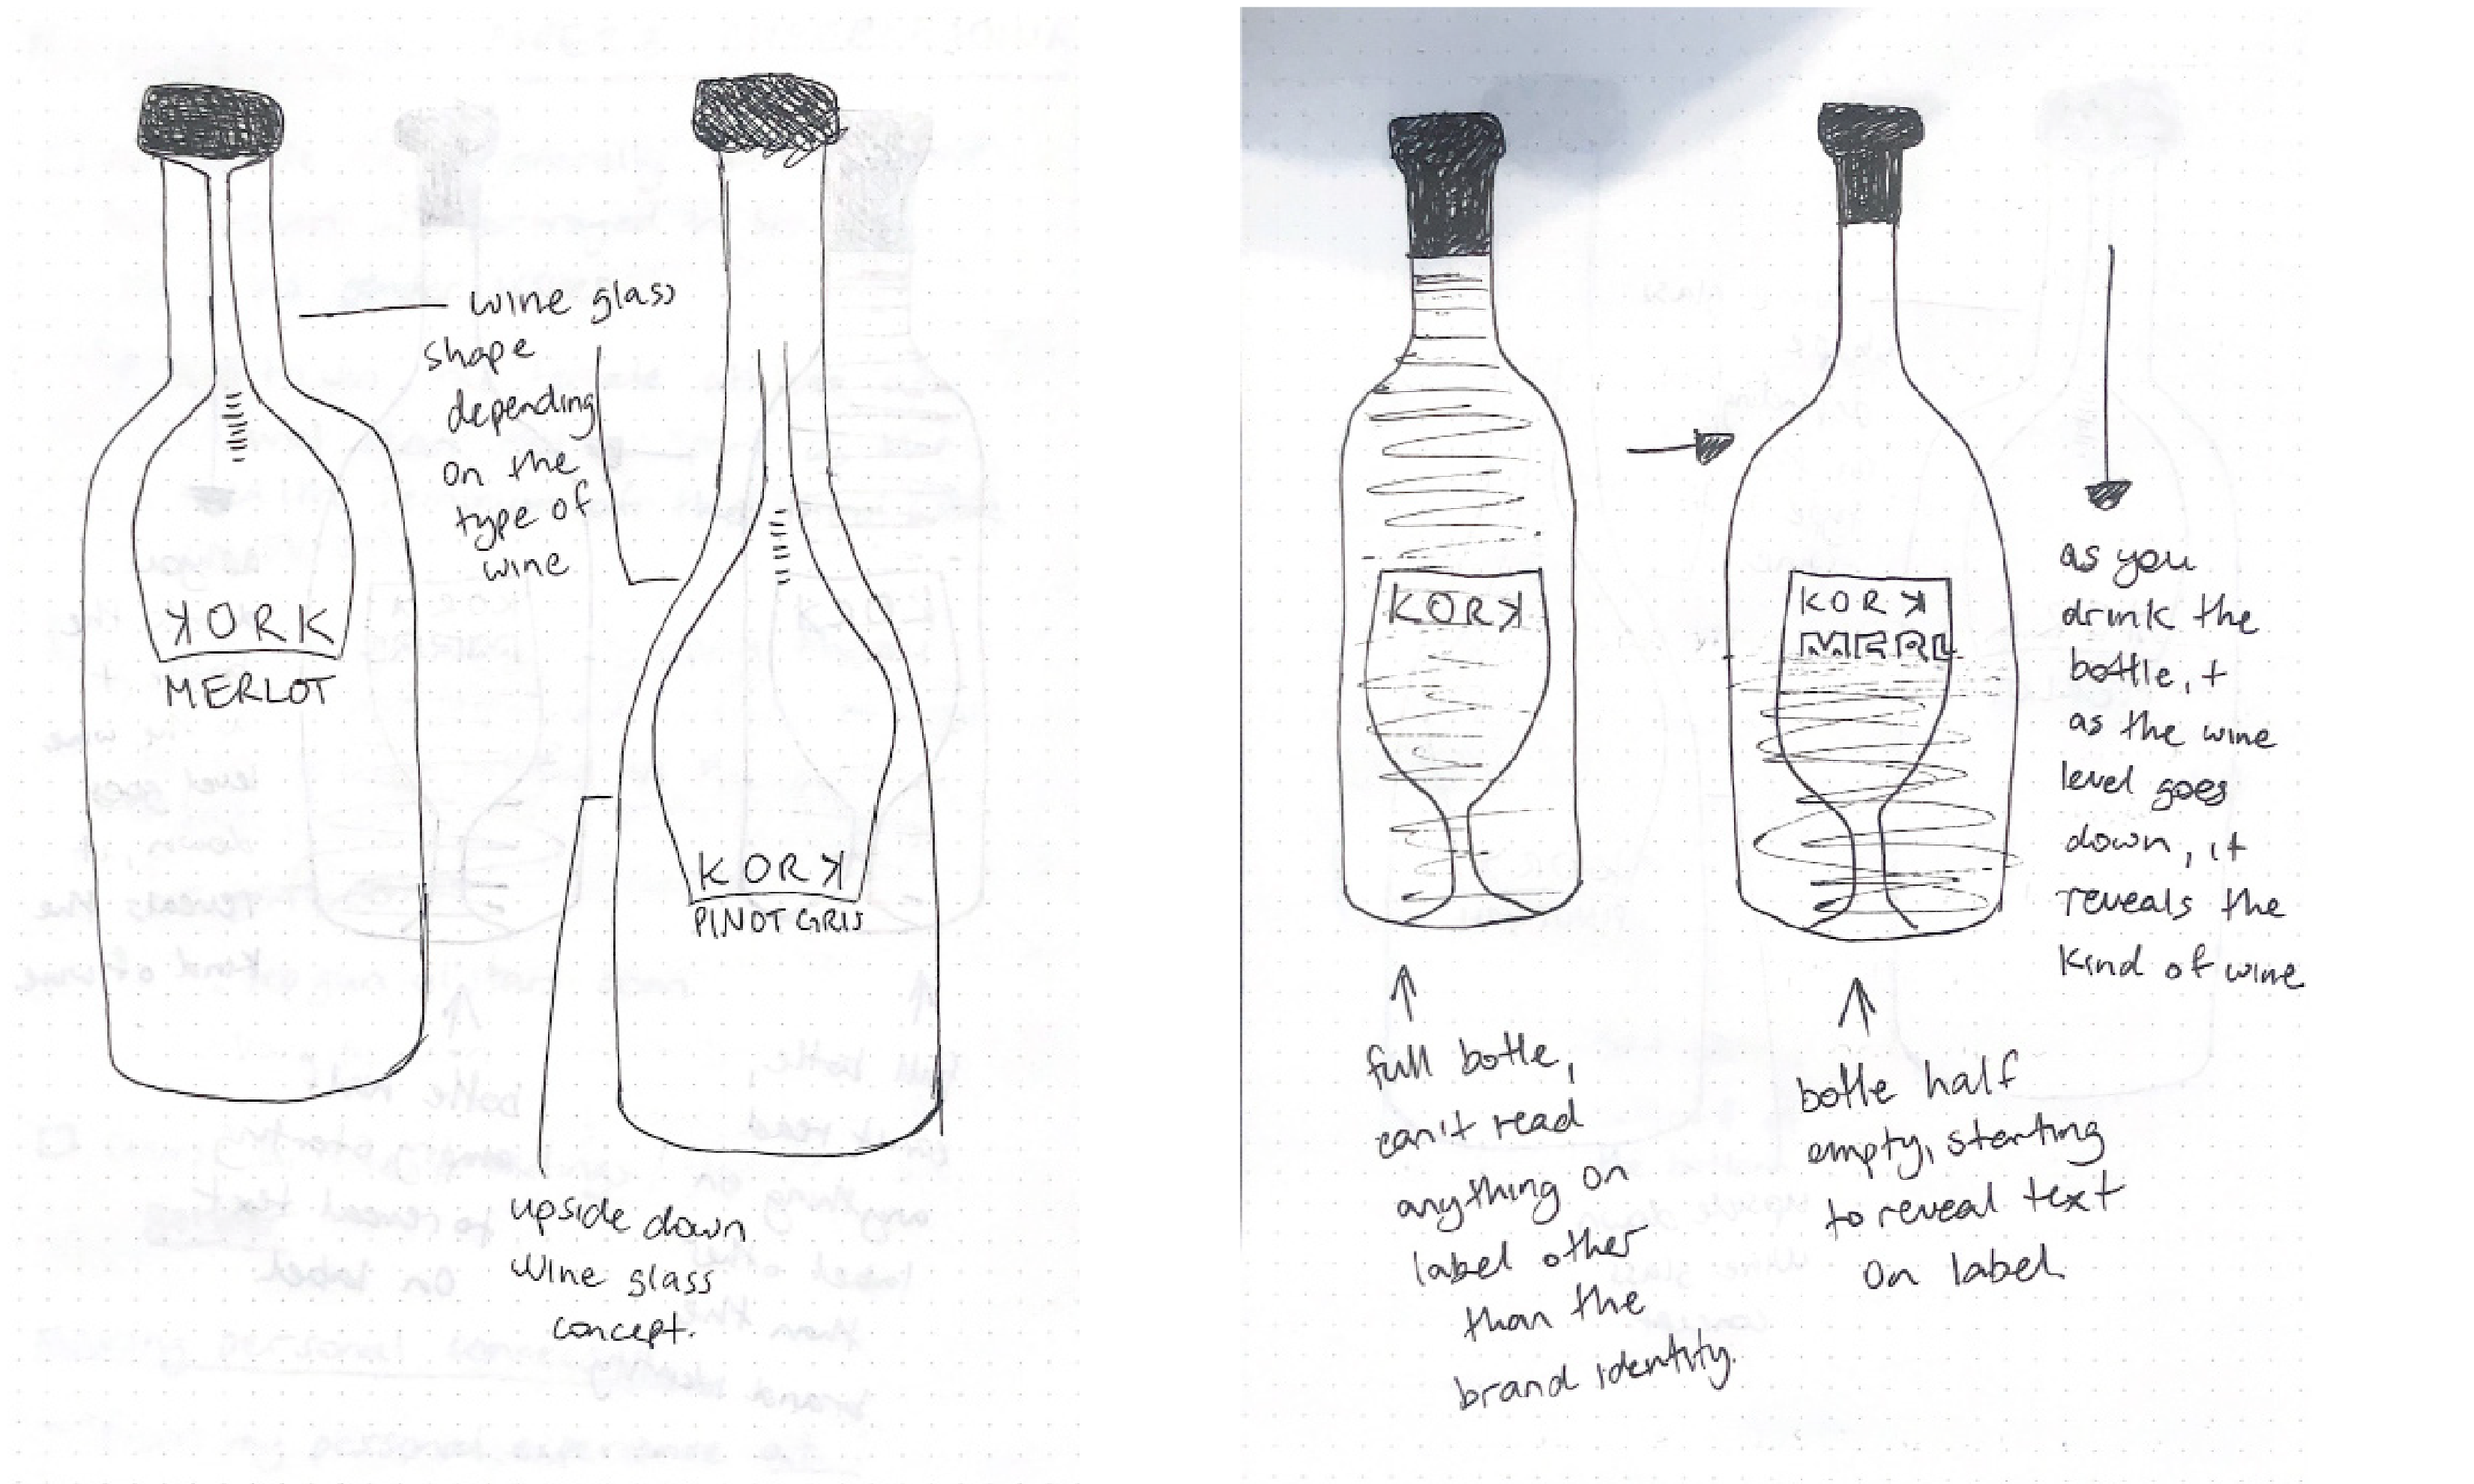 wine glass
shape
depending
on the
type of
wine
KORK
MERLOT
KORK
PINOT GRIS
upside down
wine glass
concept.
KORK
KORK
MERL
as you
drink the
bottle, +
as the wine
level goes
down, it
reveals the
kind of wine
full botle,
can't read
anything on
label other
than the
brand identity.
botle half
empty, starting
to reveal text
on label